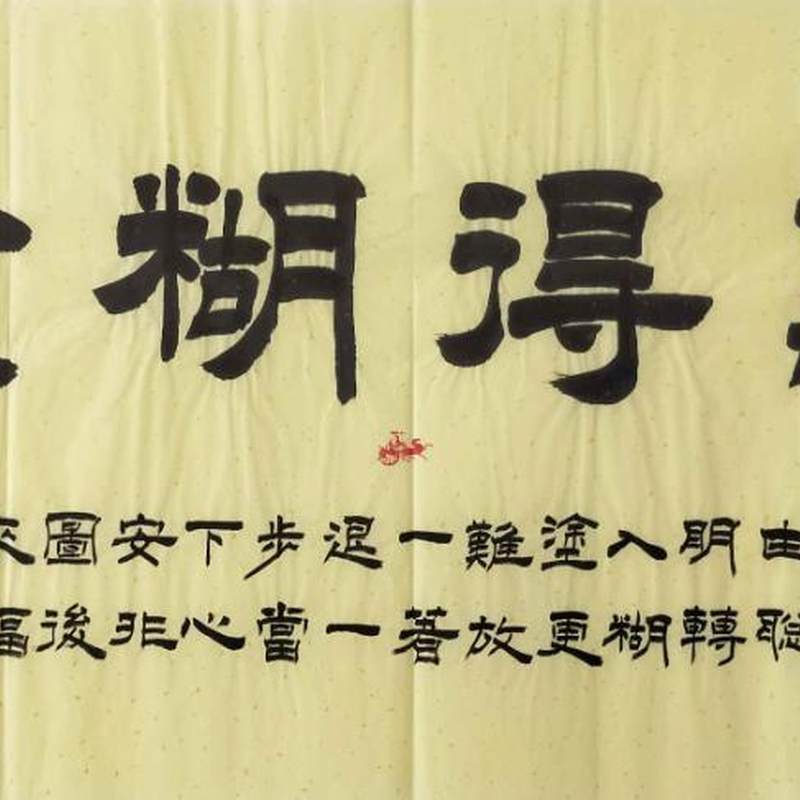 得糊
由聰
明轉
入糊
塗更
難放
一著
退一
步當
下心
安非
圖後
來福